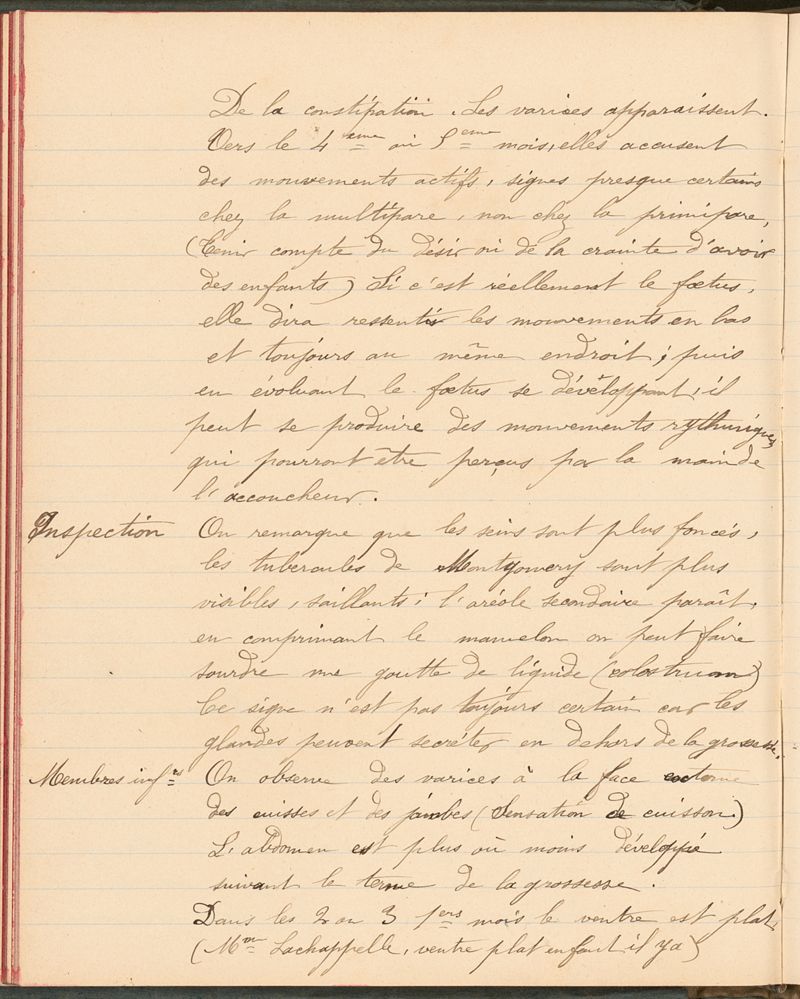 De la constipation. Les varices apparaissent.
Vers le 4ème ou 5ème mois, elles accusent
des mouvements actifs, signes presque certains
chez la multipare, non chez la primipare,
(Tenir compte du désir ou de la crainte d'avoir
des enfants) Si c'est réellement le fœtus,
elle dira ressentir les mouvements en bas
et toujours au même endroit; puis
en évoluant le fœtus se développant, il
peut se produire des mouvements rythmiques
qui pourront être perçus par la main de
l'accoucheur.
Inspection On remarque que les seins sont plus foncés,
les tubercules de Montgomery sont plus
visibles, saillants; l'aréole secondaire paraît,
en comprimant le mamelon on peut faire
sourdre une goutte de liquide (colostrum)
Ce signe n'est pas toujours certain car les
glandes peuvent secréter en dehors de la grossesse.
Membres infrs On observe des varices à la face externe
des cuisses et des jambes (Sensation de cuisson)
L'abdomen est plus où moins développé
suivant le terme de la grossesse.
Dans les 2 ou 3 1ers mois le ventre est plat
(Mme Lachappelle, ventre plat enfant il y a)